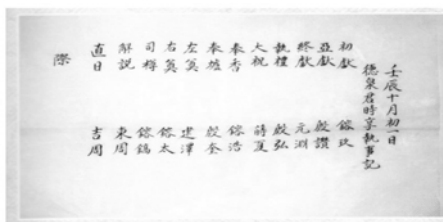 壬辰十月初一日
德泉君時享執事記
初獻 鎔玖
亞獻 殷讚
終獻 元淵
執禮 殷弘
大祝 蒔夏
奉香 鎔浩
奉爐 殷奎
左奠 建澤
右奠 鎔太
司樽 鎔鎬
解説 東周
直日 吉周
際